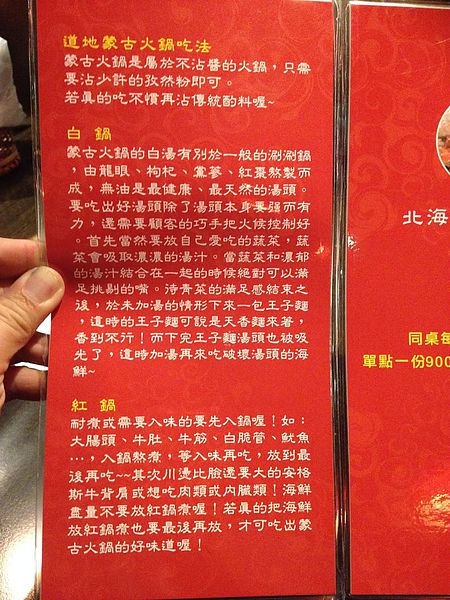 道地蒙古火鍋吃法
蒙古火鍋是屬於不沾醬的火鍋，只需
要沾少許的孜然粉即可。
若真的吃不慣再沾傳統酌料喔~
白 鍋
蒙古火鍋的白湯有別於一般的涮涮鍋
，由龍眼、枸杞、黨蔘、紅棗熬製而
成，無油是最健康、最天然的湯頭。
要吃出好湯頭除了湯頭本身要強而有
力，還需要顧客的巧手把火候控制好
。首先當然要放自己愛吃的蔬菜，蔬
菜會吸取濃濃的湯汁。當蔬菜和濃郁
的湯汁結合在一起的時候絕對可以滿
足挑剔的嘴。待青菜的滿足感結束之
後，於未加湯的情形下來一包王子麵
，這時的王子麵可說是天香麵來著，
香到不行！而下完王子麵湯頭也被吸
光了，這時加湯再來吃破壞湯頭的海
鮮~
紅 鍋
耐煮或需要入味的要先入鍋喔！如：
大腸頭、牛肚、牛筋、白脆管、魷魚
…，入鍋熬煮，等入味再吃，放到最
後再吃~~其次川燙比臉還要大的安格
斯牛背肩或想吃肉類或內臟類！海鮮
盡量不要放紅鍋煮喔！若真的把海鮮
放紅鍋煮也要最後再放，才可吃出蒙
古火鍋的好味道喔！
北海
同桌每
單點一份900